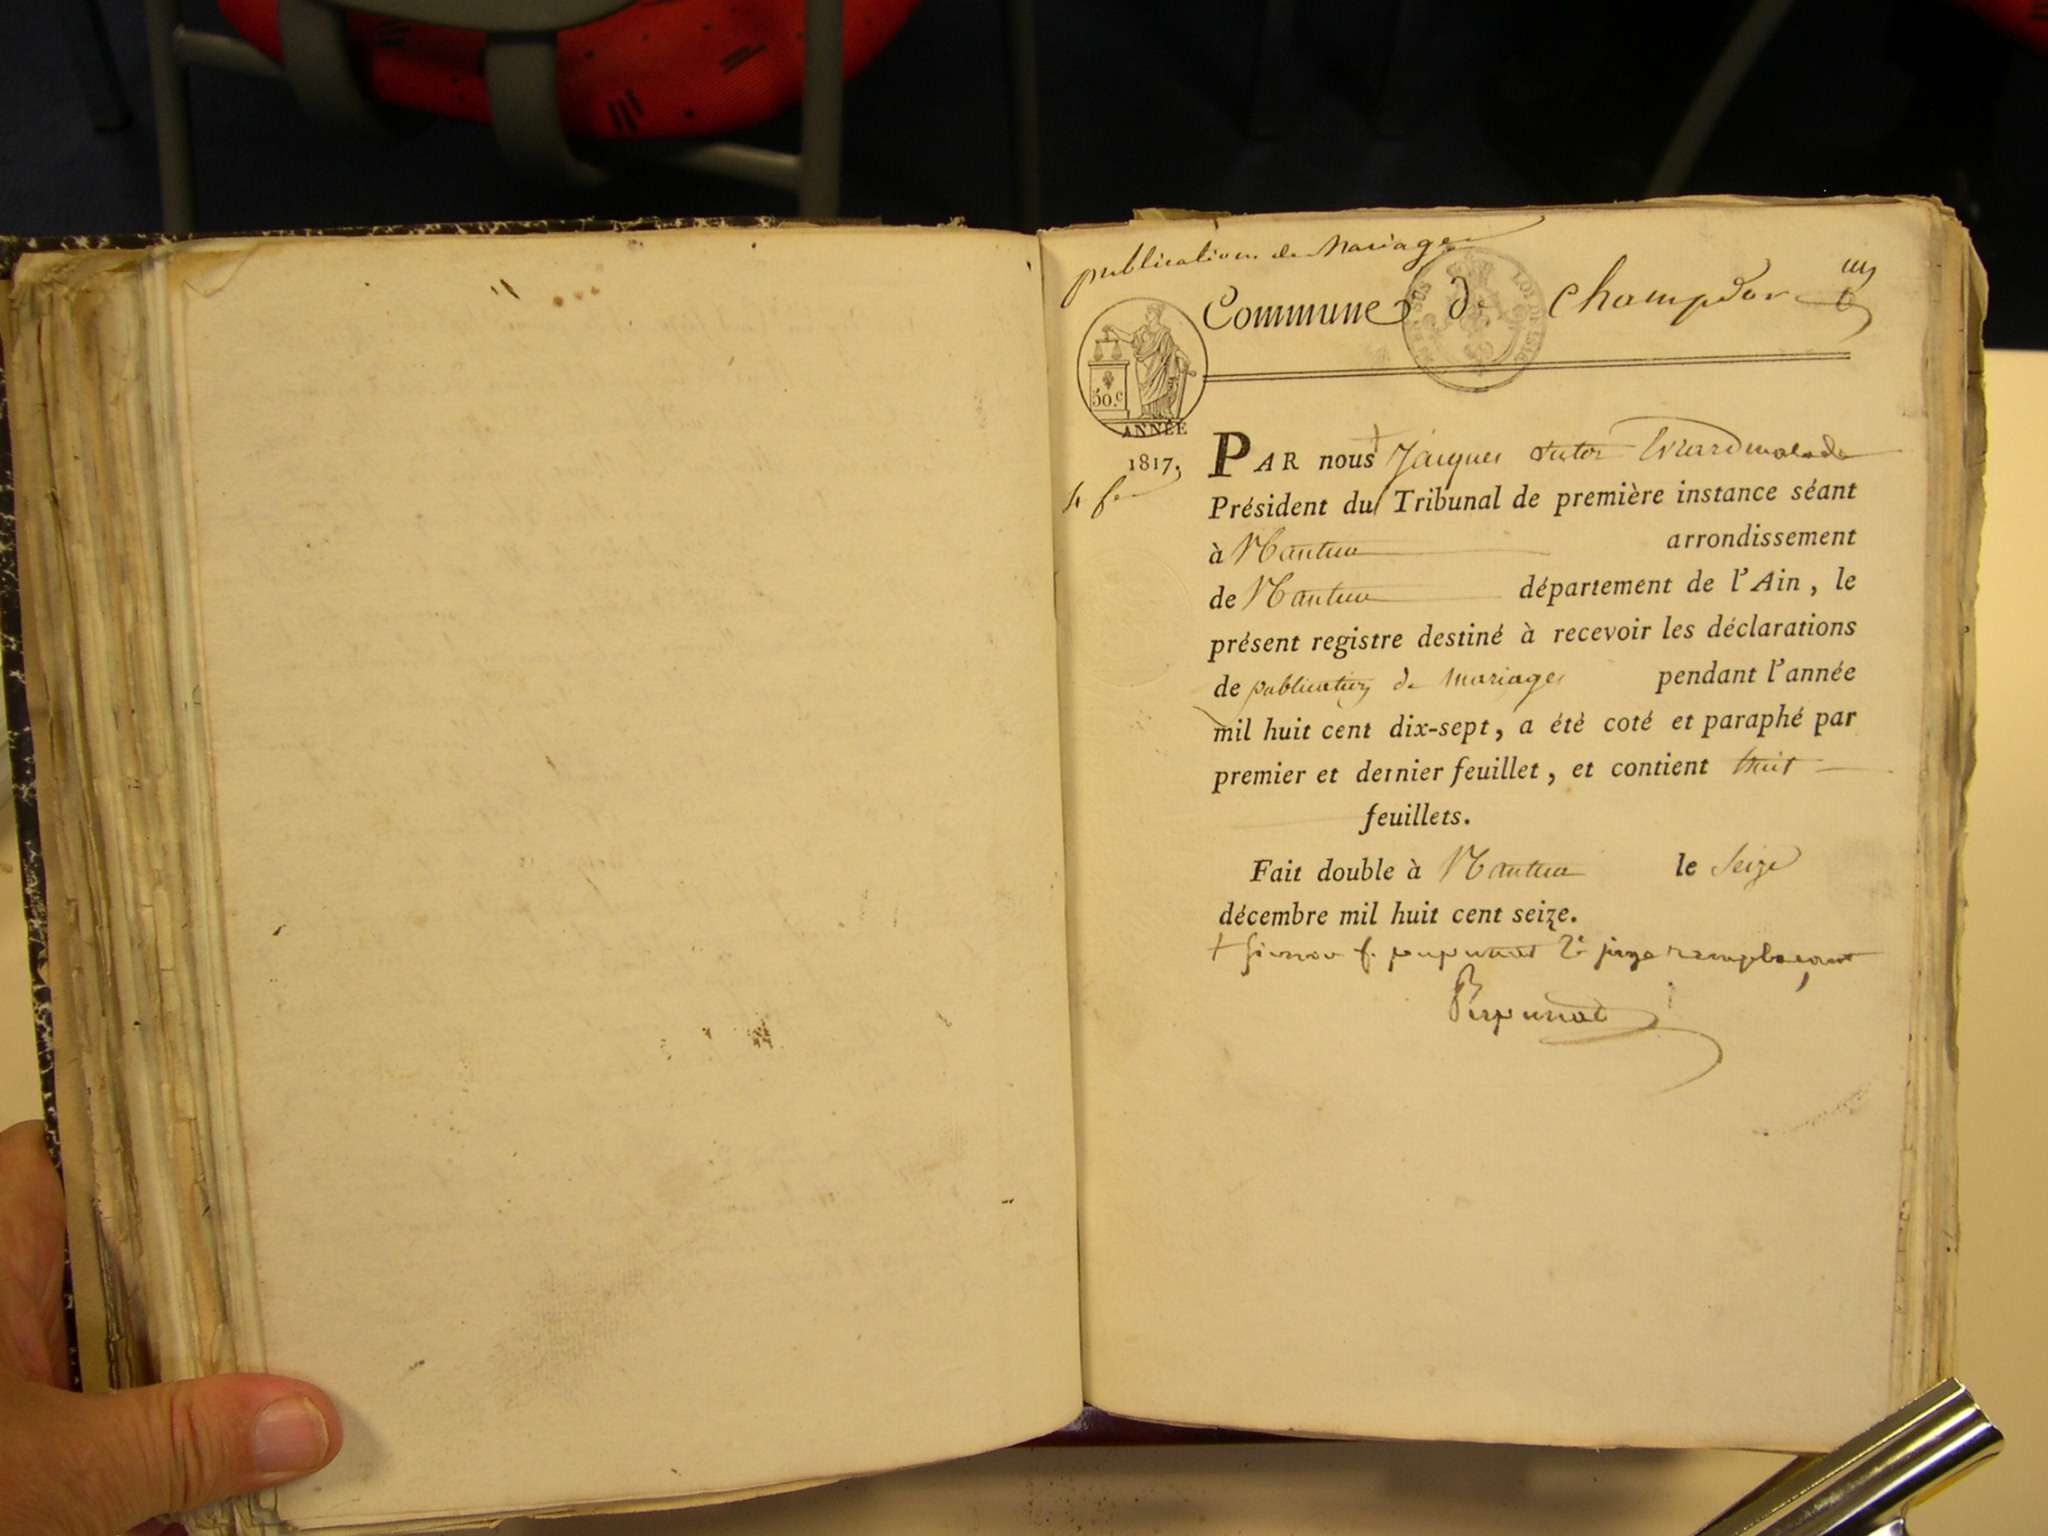 publication de Mariages
Commune de Champdor
50.c
ANNÉE
1817,
4 f
PAR nous Jacques
Président du Tribunal de première instance séant
à Nantua arrondissement
de Nantua département de l'Ain, le
présent registre destiné à recevoir les déclarations
de publication de mariages pendant l'année
mil huit cent dix-sept, a été coté et paraphé par
premier et dernier feuillet, et contient huit
feuillets.
Fait double à Nantua le Seize
décembre mil huit cent seize.
juge remplaçant